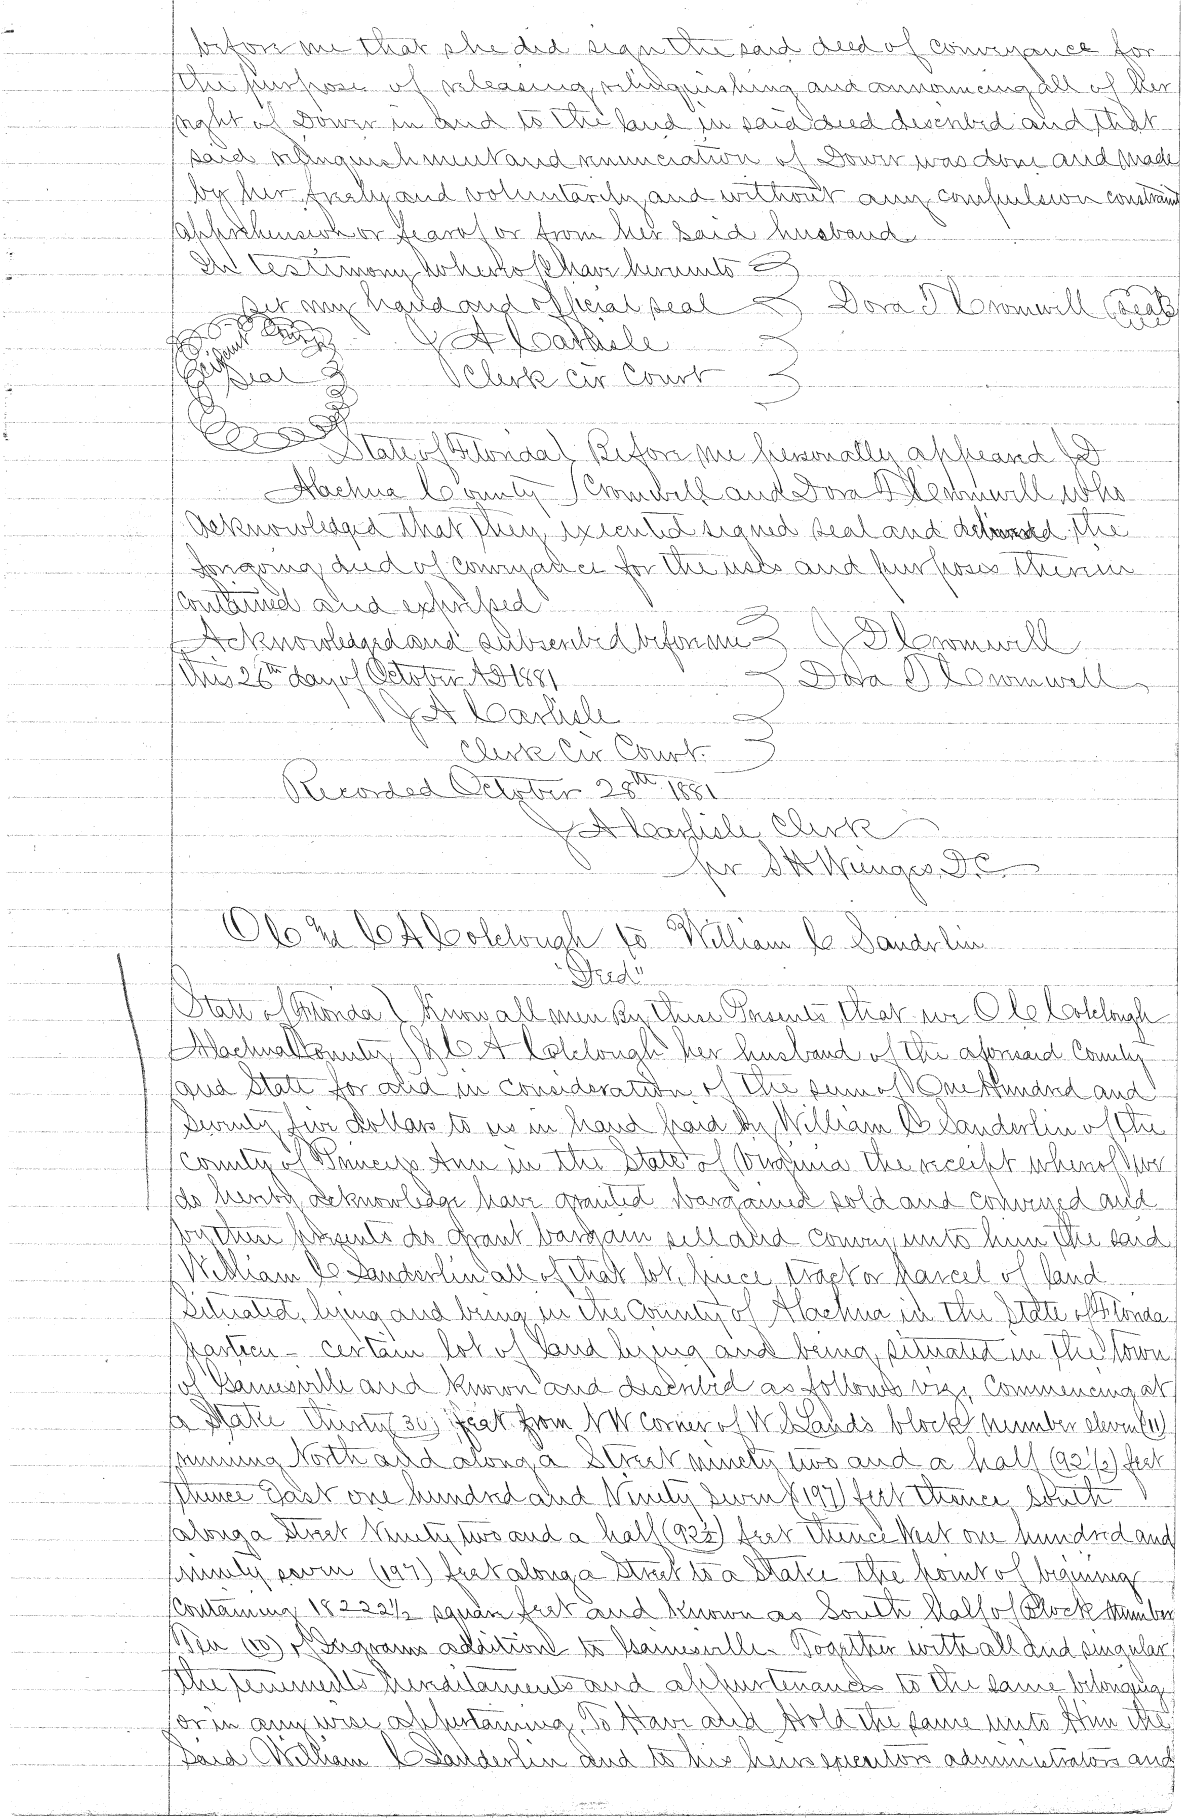 before me that she did sign the said deed of conveyance for
the purpose of releasing, relinquishing and announcing all of her
right of Dower in and to the land in said deed described and that
said relinquishment and renunciation of Dower was done and made
by her freely and voluntarily and without any compulsion constraint
apprehension or fear of or from her said husband
In testimony whereof I have hereunto
set my hand and official seal Dora T Cromwell (seal)
J A Carlisle
Clerk Cir Court
Circuit Court
Seal
State of Florida } Before me personally appeared J D
Alachua County } Cromwell and Dora T Cromwell who
acknowledged that they executed signed seal and delivered the
forgoing deed of conveyance for the uses and purposes therein
contained and expressed
Acknowledged and subscribed before me J D Cromwell
this 26th day of October AD 1881 Dora T Cromwell
J A Carlisle
Clerk Cir Court
Recorded October 28th 1881
J A Carlisle Clerk
per S H Wienges, D.C.
O C and C A Colclough to William C Sanderlin
"Deed"
State of Florida } Know all men By these Presents, that we O C Colclough
Alachua County } & C A Colclough her husband of the aforesaid County
and State for and in consideration of the sum of One Hundred and
Seventy five dollars to us in hand paid by William C Sanderlin of the
County of Princess Ann in the State of Virginia the receipt whereof we
do hereby acknowledge have granted bargained sold and conveyed and
by these presents do grant bargain sell and convey unto him the said
William C Sanderlin all of that lot, piece, tract or parcel of land
Situated, lying and being in the County of Alachua in the State of Florida
certain lot of land lying and being, situated in the town
of Gainesville and known and described as follows viz, Commencing at
a Stake thirty (30) feet from NW corner of block number eleven (11)
running North and along a Street ninety two and a half (92 1/2) feet
thence East one hundred and Ninety Seven (197) feet thence South
along a Street Ninety two and a half (92 1/2) feet thence West one hundred and
ninety seven (197) feet along a Street to a Stake the point of begining
Containing 18222 1/2 square feet and known as South half of Block Number
Ten (10) of Ingrams addition to Gainesville. Together with all and singular
the tenements hereditaments and appurtenances to the same belonging
or in any wise appertaining, To Have and Hold the same unto Him the
Said William C Sanderlin and to his heirs executors administrators and